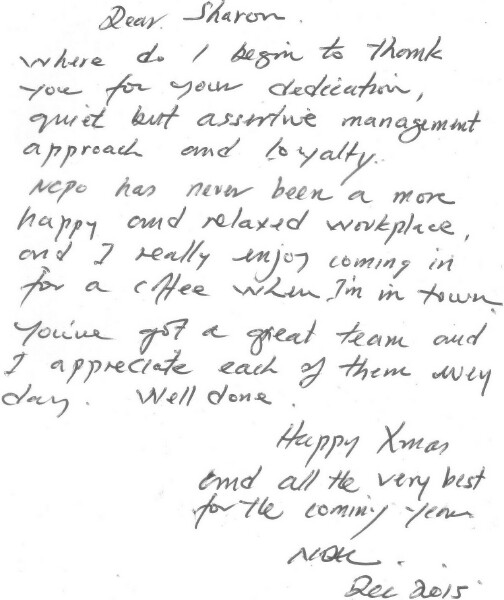 Dear Sharon.
Where do I begin to thank
you for your dedication,
quiet but assertive management
approach and loyalty.
NCPO has never been a more
happy and relaxed workplace,
and I really enjoy coming in
for a coffee when I'm in town.
You've got a great team and
I appreciate each of them every
day. Well done.
Happy Xmas
and all the very best
for the coming year
Dec 2015